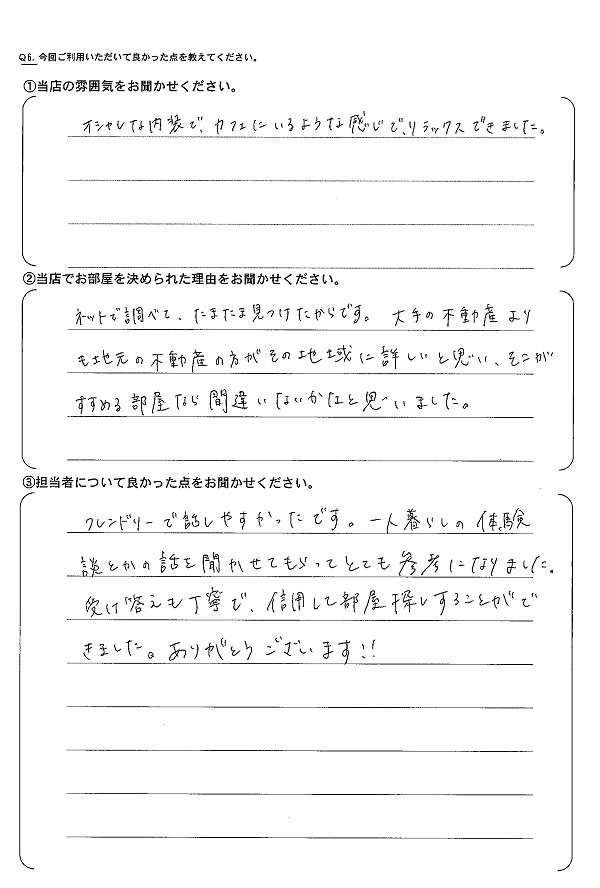 Q6. 今回ご利用いただいて良かった点を教えてください。
①当店の雰囲気をお聞かせください。
オシャレな内装で、カフェにいるような感じで、リラックスできました。
②当店でお部屋を決められた理由をお聞かせください。
ネットで調べて、たまたま見つけたからです。大手の不動産より
も地元の不動産の方がその地域に詳しいと思い、そこが
すすめる部屋なら間違いないかなと思いました。
③担当者について良かった点をお聞かせください。
フレンドリーで話しやすかったです。一人暮らしの体験
談とかの話を聞かせてもらってとても参考になりました。
受け答えも丁寧で、信用して部屋探しすることがで
きました。ありがとうございます!!